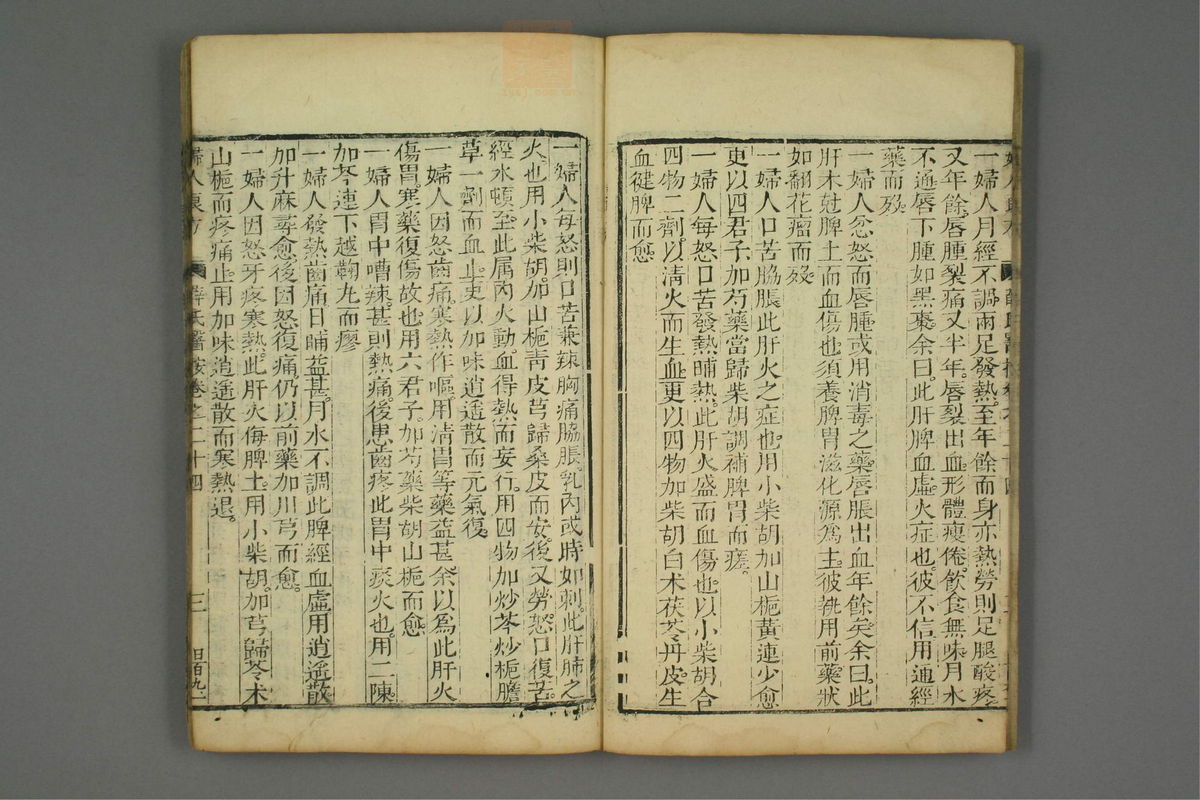 一婦人月經不調兩足發熱至年餘而身亦熱勞則足腿酸疼
又年餘唇腫裂痛又半年唇裂出血形體瘦倦飲食無味月水
不通唇下腫如黑棗余曰此肝脾血虛火症也彼不信用通經
藥而歿
一婦人忿怒而唇腫或用消毒之藥唇脹出血年餘矣余曰此
肝木尅脾土而血傷也須養脾胃滋化源為主彼執用前藥狀
如翻花瘤而歿
一婦人口苦脇脹此肝火之症也用小柴胡加山梔黃連少愈
更以四君子加芍藥當歸柴胡調補脾胃而瘥
一婦人每怒口苦發熱晡熱此肝火盛而血傷也以小柴胡合
四物二劑以清火而生血更以四物加柴胡白术茯苓丹皮生
血健脾而愈
一婦人每怒則口苦兼辣胸痛脇脹乳內或時如刺此肝肺之
火也用小柴胡加山梔青皮芎歸桑皮而安後又勞怒口復苦
經水頓至此屬內火動血得熱而妄行用四物加炒芩炒梔膽
草一劑而血止更以加味逍遙散而元氣復
一婦人因怒齒痛寒熱作嘔用清胃等藥益甚余以為此肝火
傷胃寒藥復傷故也用六君子加芍藥柴胡山梔而愈
一婦人胃中嘈辣甚則熱痛後患齒疼此胃中痰火也用二陳
加芩連下越鞠丸而瘳
一婦人發熱齒痛日晡益甚月水不調此脾經血虛用逍遙散
加升麻尋愈後因怒復痛仍以前藥加川芎而愈
一婦人因怒牙疼寒熱此肝火侮脾土用小柴胡加芎歸苓术
山梔而疼痛止用加味逍遙散而寒熱退
婦人良方 薛氏醫按卷之二十四 三